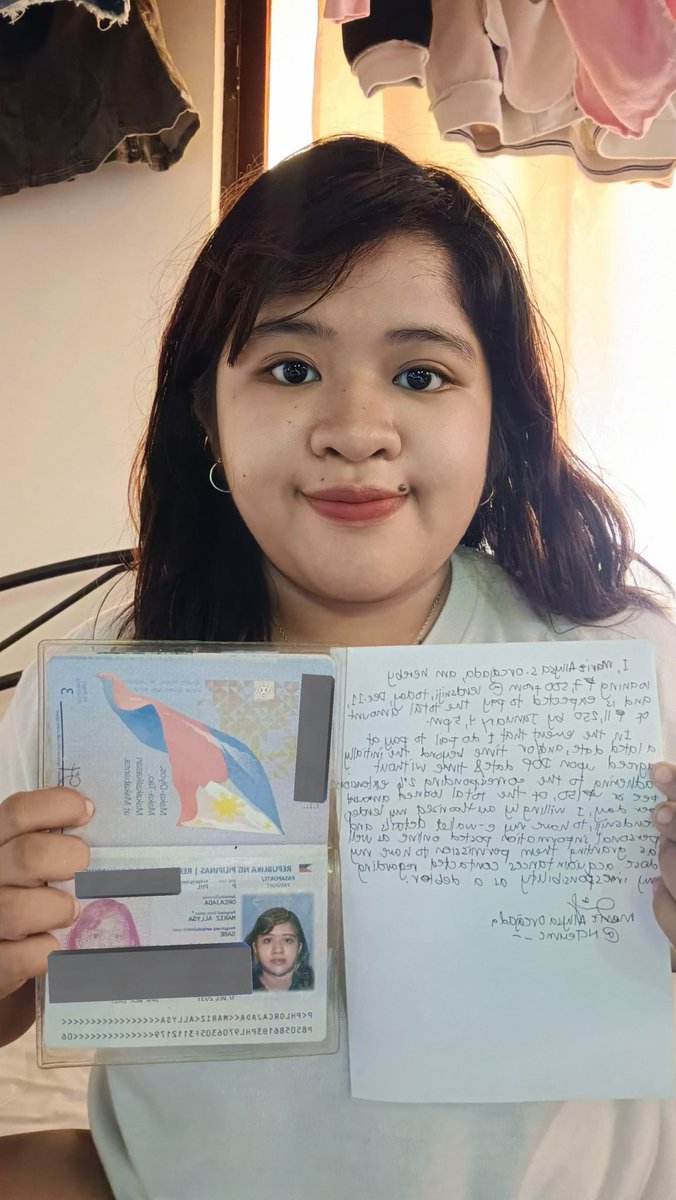 3
Maka-Diyos,
Maka-Tao,
Makakalikasan
at Makabansa.
REPUBLIKA NG PILIPINAS
PASAPORTE
PASSPORT
P
PHL
ORCAJADA
MARIZ ALLYSA
SABE
I, Mariz Allysa S. Orcajada, am hereby
loaning ₱ 7,500 from @lendsniji, today, Dec. 11,
and is expected to pay the total amount
of ₱ 11,250 by January 4, 5 pm.
In the event that I do fail to pay at
a later date, and/or time beyond the initially
agreed upon DOP date & time without
adhering to the corresponding 2% extension
fee or ₱150, of the total loaned amount
per day, I willing by authorized my lender
lendsniji, to have my e-wallet details and
personal information posted online as well
as granting them permission to have my
close acquaintances contacted regarding
my irresponsibility as a debtor.
Mariz Allysa Orcajada